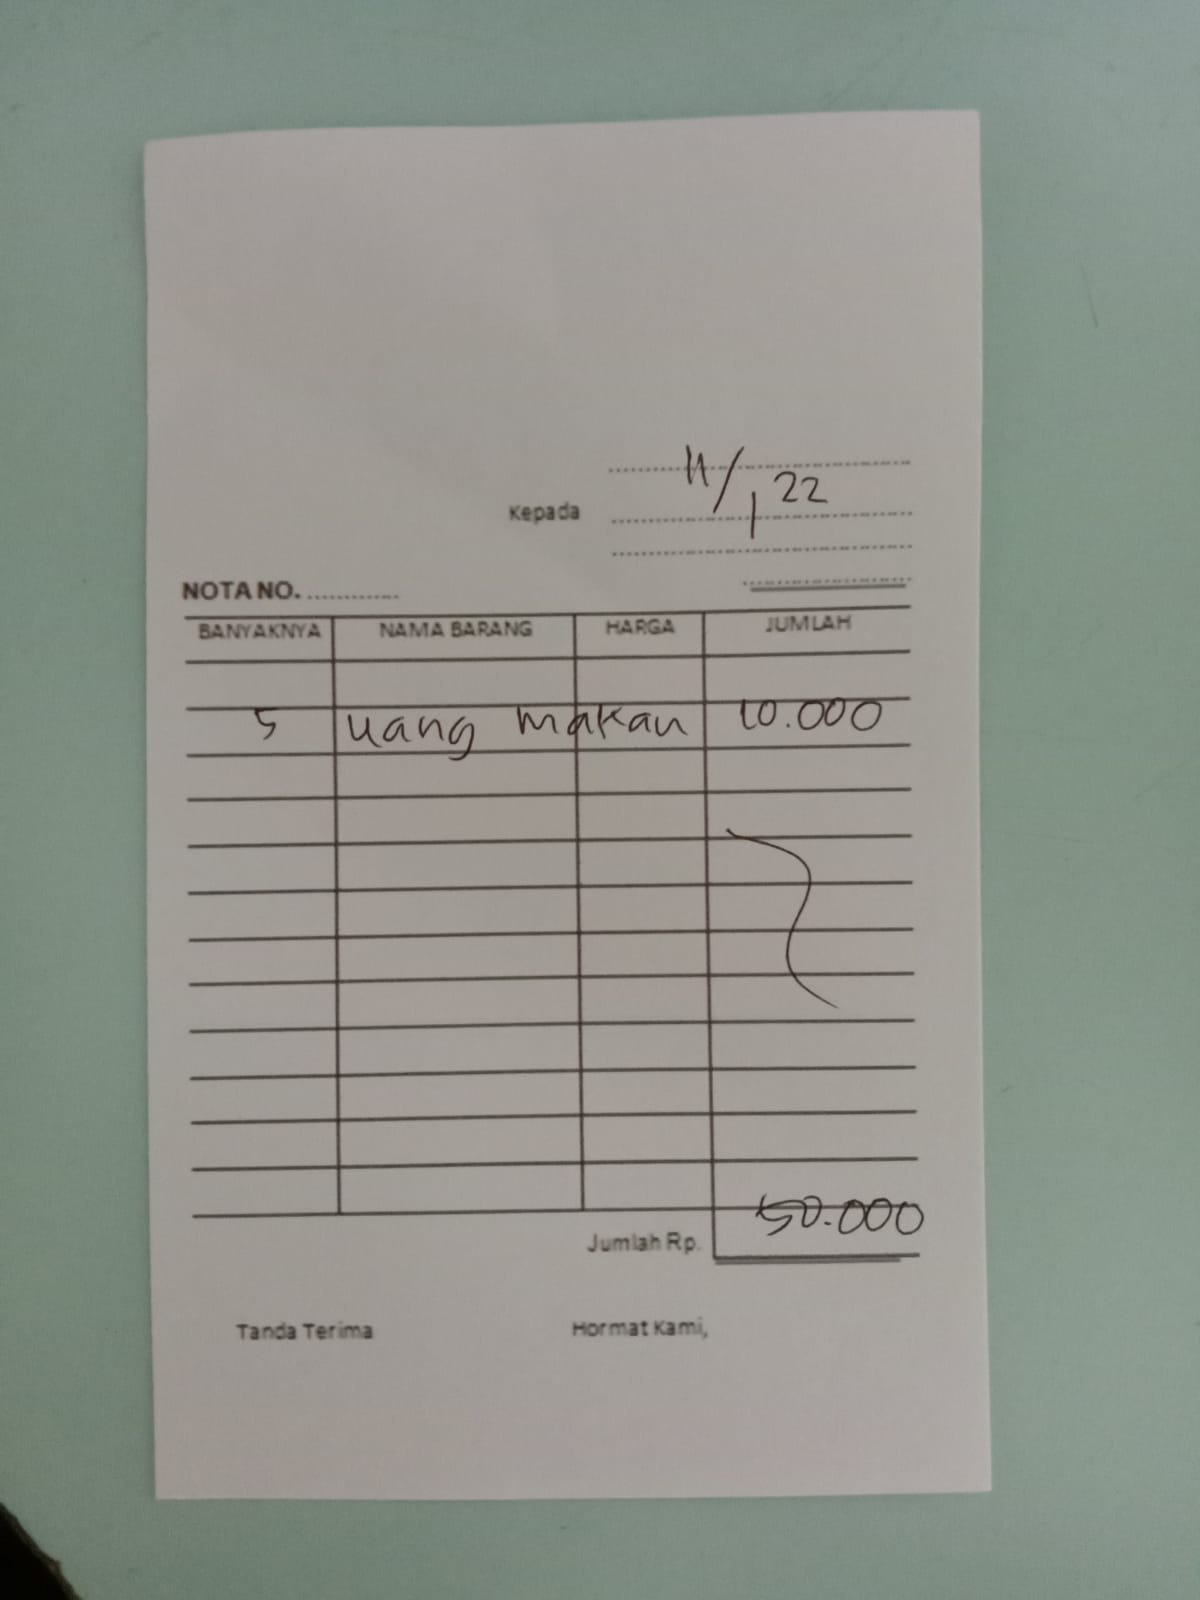 11/1 22
Kepada
NOTA NO. .............
BANYAKNYA NAMA BARANG HARGA JUMLAH
5 uang makan 10.000
50.000
Jumlah Rp.
Tanda Terima Hormat Kami,